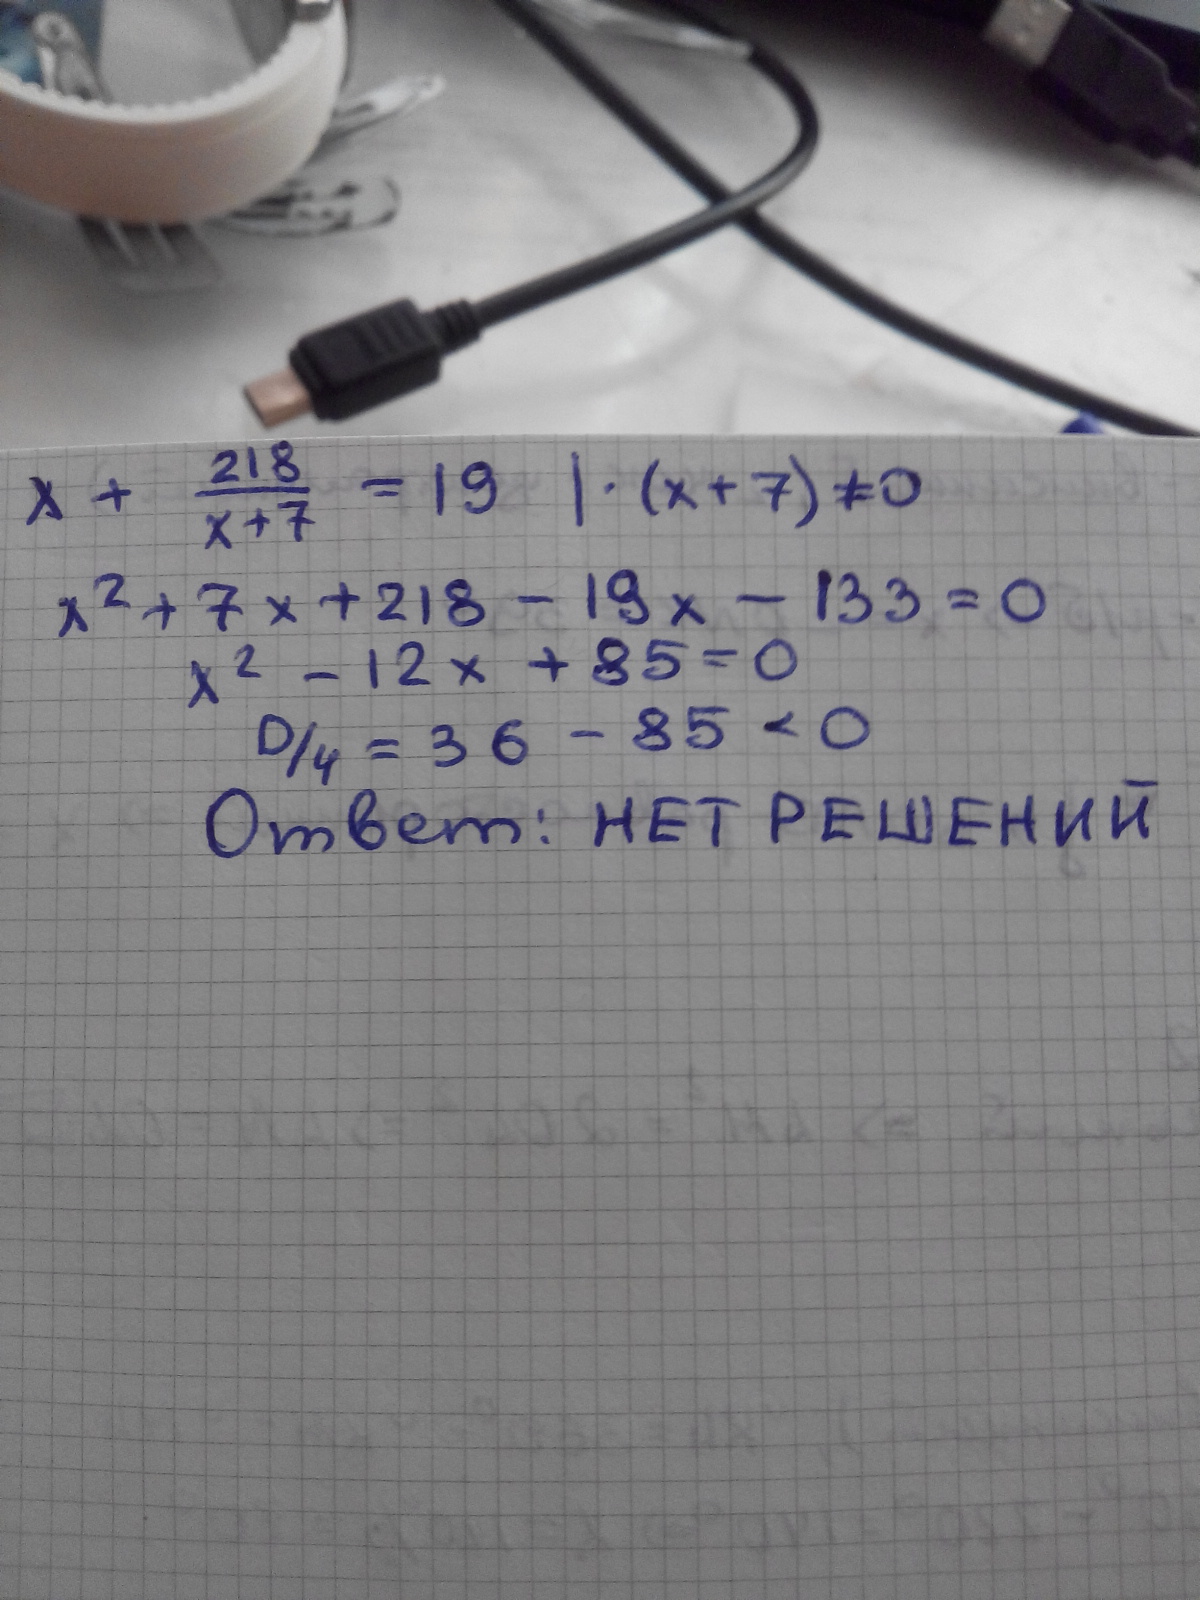 x + 218/(x+7) = 19 | · (x+7) ≠ 0
x² + 7x + 218 - 19x - 133 = 0
x² - 12x + 85 = 0
D/4 = 36 - 85 < 0
Ответ: НЕТ РЕШЕНИЙ